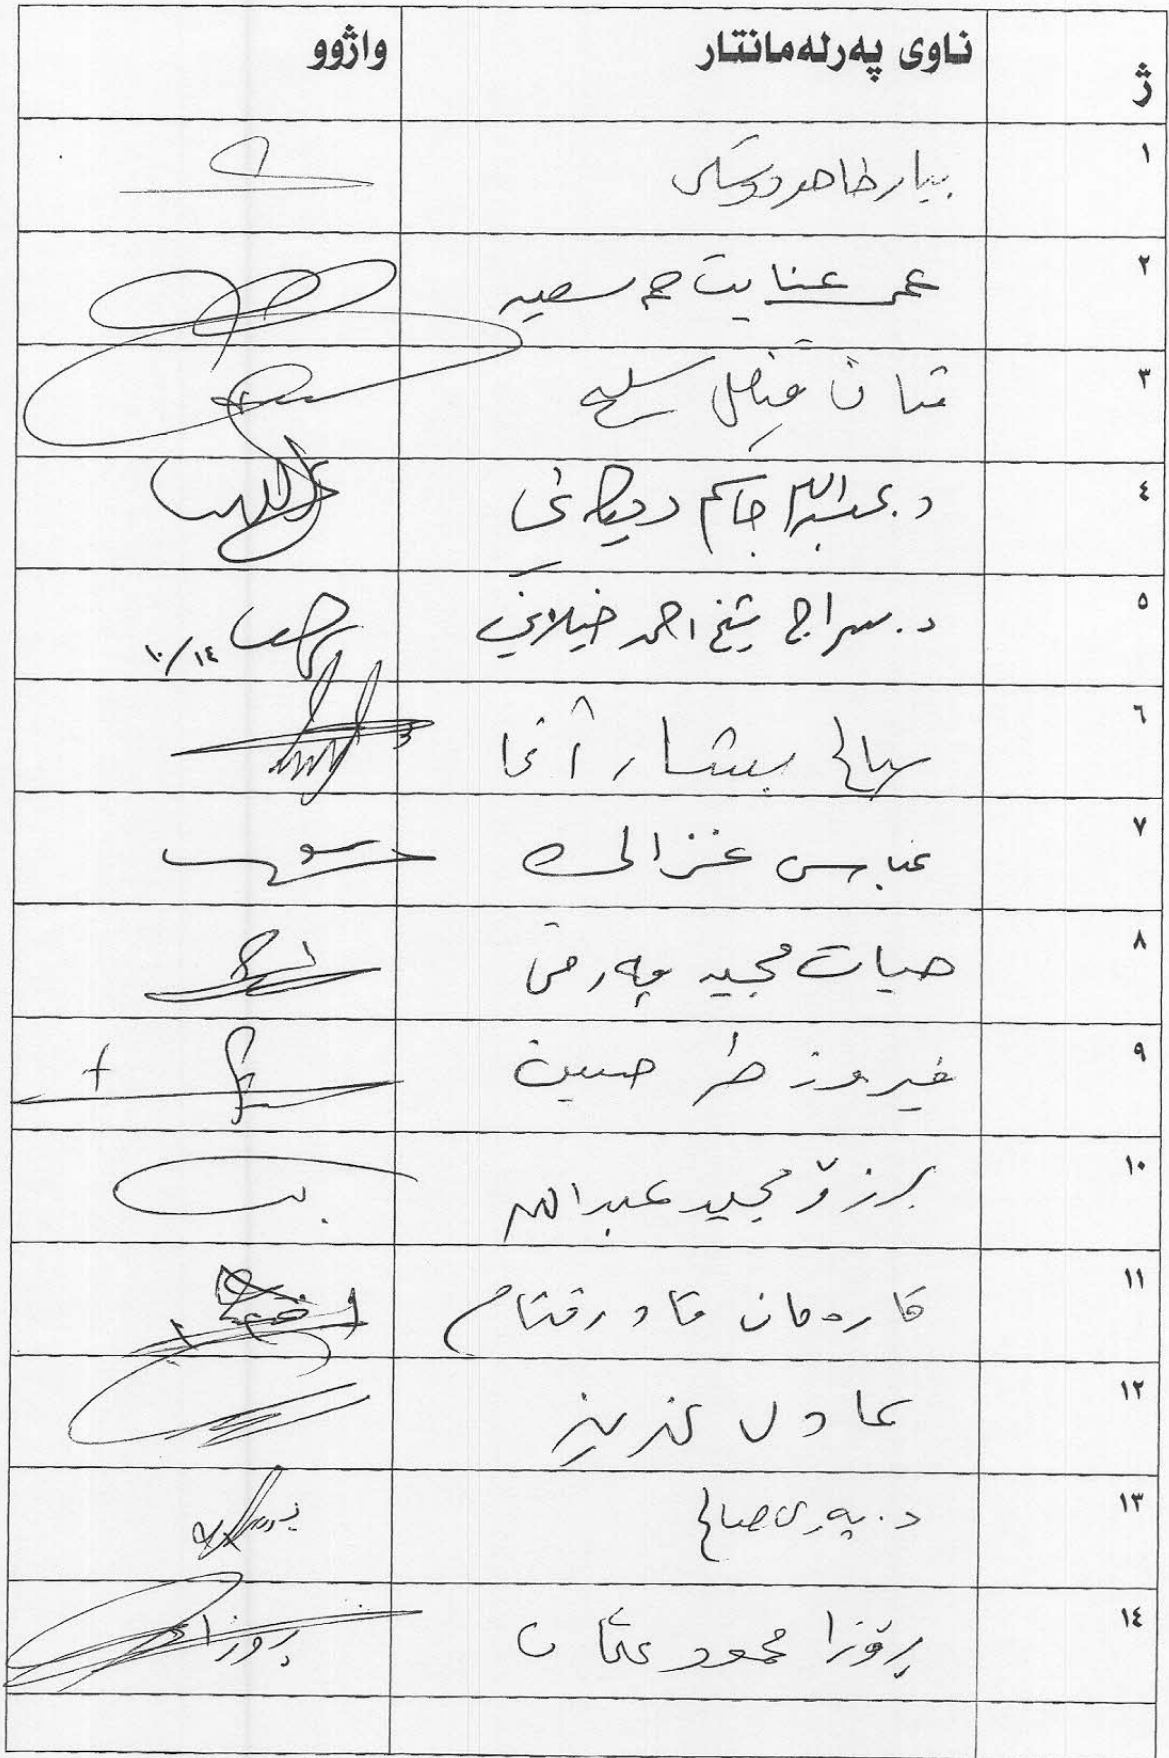 ژ ناوی پەرلەمانتار واژوو
١ بیار طاهر دوسکی
٢ عمر عنایت حمه سعید
٣ شان فیصل
٤ د. عبدالله جاسم ریکانی
٥ د. سراج شیخ احمد خیلانی ١٤/١٠
٦ صالح بیشار آغا
٧ عباس غزالی
٨ حیات مجید
٩ فیروز طه حسین
١٠ برزۆ مجید عبدالله
١١ قارەمان قادر
١٢ عادل عزیز
١٣ د. پەری صالح
١٤ رۆزا محمود عثمان